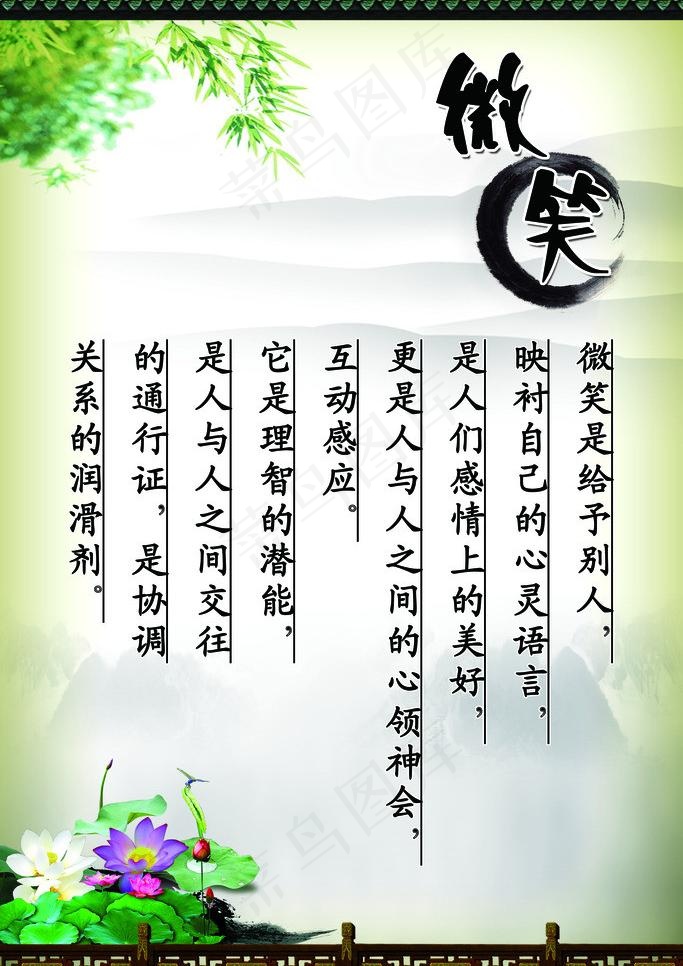 微笑
微笑是给予别人，
映衬自己的心灵语言，
是人们感情上的美好，
更是人与人之间的心领神会，
互动感应。
它是理智的潜能，
是人与人之间交往
的通行证，是协调
关系的润滑剂。
菜鸟图库